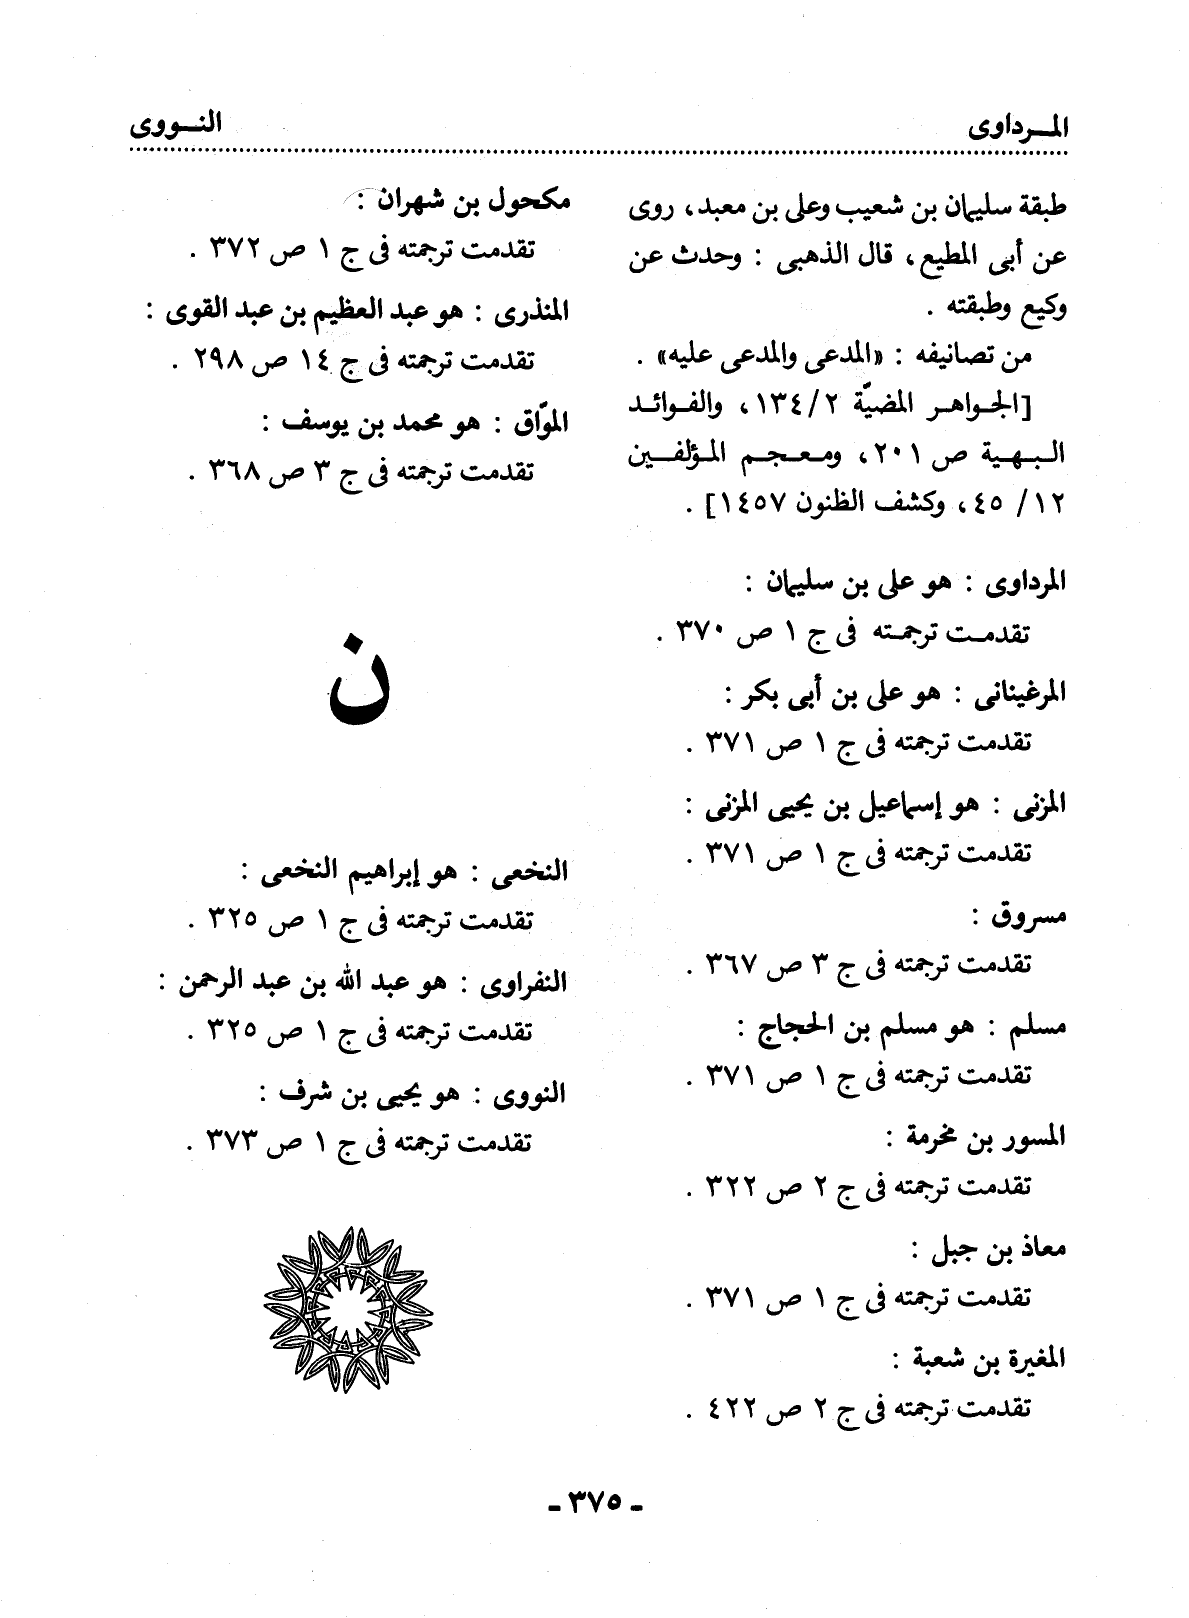 المـرداوى
النـووى
طبقة سليمان بن شعيب وعلى بن معبد، روى
عن أبى المطيع، قال الذهبى : وحدث عن
وكيع وطبقته .
من تصانيفه : «المدعى والمدعى عليه» .
[الجواهر المضيّة ٢/ ١٣٤، والفوائد
البهية ص ٢٠١، ومعجم المؤلفين
١٢/ ٤٥، وكشف الظنون ١٤٥٧] .
المرداوى : هو على بن سليمان :
تقدمت ترجمته فى ج ١ ص ٣٧٠ .
المرغينانى : هو على بن أبى بكر :
تقدمت ترجمته فى ج ١ ص ٣٧١ .
المزنى : هو إسماعيل بن يحيى المزنى :
تقدمت ترجمته فى ج ١ ص ٣٧١ .
مسروق :
تقدمت ترجمته فى ج ٣ ص ٣٦٧ .
مسلم : هو مسلم بن الحجاج :
تقدمت ترجمته فى ج ١ ص ٣٧١ .
المسور بن مخرمة :
تقدمت ترجمته فى ج ٢ ص ٣٢٢ .
معاذ بن جبل :
تقدمت ترجمته فى ج ١ ص ٣٧١ .
المغيرة بن شعبة :
تقدمت ترجمته فى ج ٢ ص ٤٢٢ .
مكحول بن شهران :
تقدمت ترجمته فى ج ١ ص ٣٧٢ .
المنذرى : هو عبد العظيم بن عبد القوى :
تقدمت ترجمته فى ج ١٤ ص ٢٩٨ .
الموّاق : هو محمد بن يوسف :
تقدمت ترجمته فى ج ٣ ص ٣٦٨ .
ن
النخعى : هو إبراهيم النخعى :
تقدمت ترجمته فى ج ١ ص ٣٢٥ .
النفراوى : هو عبد الله بن عبد الرحمن :
تقدمت ترجمته فى ج ١ ص ٣٢٥ .
النووى : هو يحيى بن شرف :
تقدمت ترجمته فى ج ١ ص ٣٧٣ .
- ٣٧٥ -